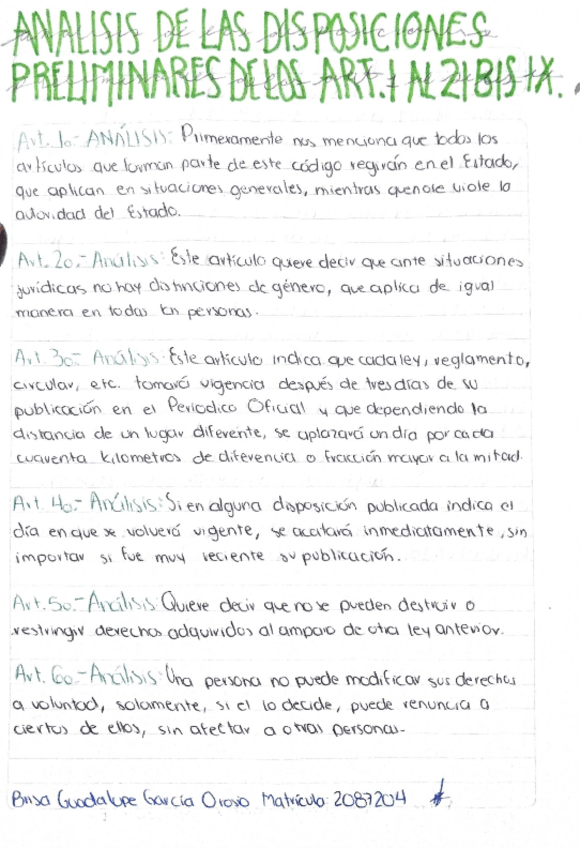 ANALISIS DE LAS DISPOSICIONES
PRELIMINARES DE LOS ART. 1 AL 21 BIS IX.
Art. 1o.- ANÁLISIS: Primeramente nos menciona que todos los
artículos que forman parte de este código regirán en el Estado,
que aplican en situaciones generales, mientras que no se viole la
autoridad del Estado.
Art. 2o.- Análisis: Este artículo quiere decir que ante situaciones
jurídicas no hay distinciones de género, que aplica de igual
manera en todas las personas.
Art. 3o.- Análisis: Este artículo indica que cada ley, reglamento,
circular, etc. tomará vigencia después de tres días de su
publicación en el Periodico Oficial y que dependiendo la
distancia de un lugar diferente, se aplazará un día por cada
cuarenta kilometros de diferencia o fracción mayor a la mitad.
Art. 4o.- Análisis: Si en alguna disposición publicada indica el
día en que se volverá vigente, se acatará inmediatamente, sin
importar si fue muy reciente su publicación.
Art. 5o.- Análisis: Quiere decir que no se pueden destruir o
restringir derechos adquiridos al amparo de otra ley anterior.
Art. 6o.- Análisis: Una persona no puede modificar sus derechos
a voluntad, solamente, si el lo decide, puede renuncia a
ciertos de ellos, sin afectar a otras personas.
Brisa Guadalupe García Orozo Matrícula: 2087204